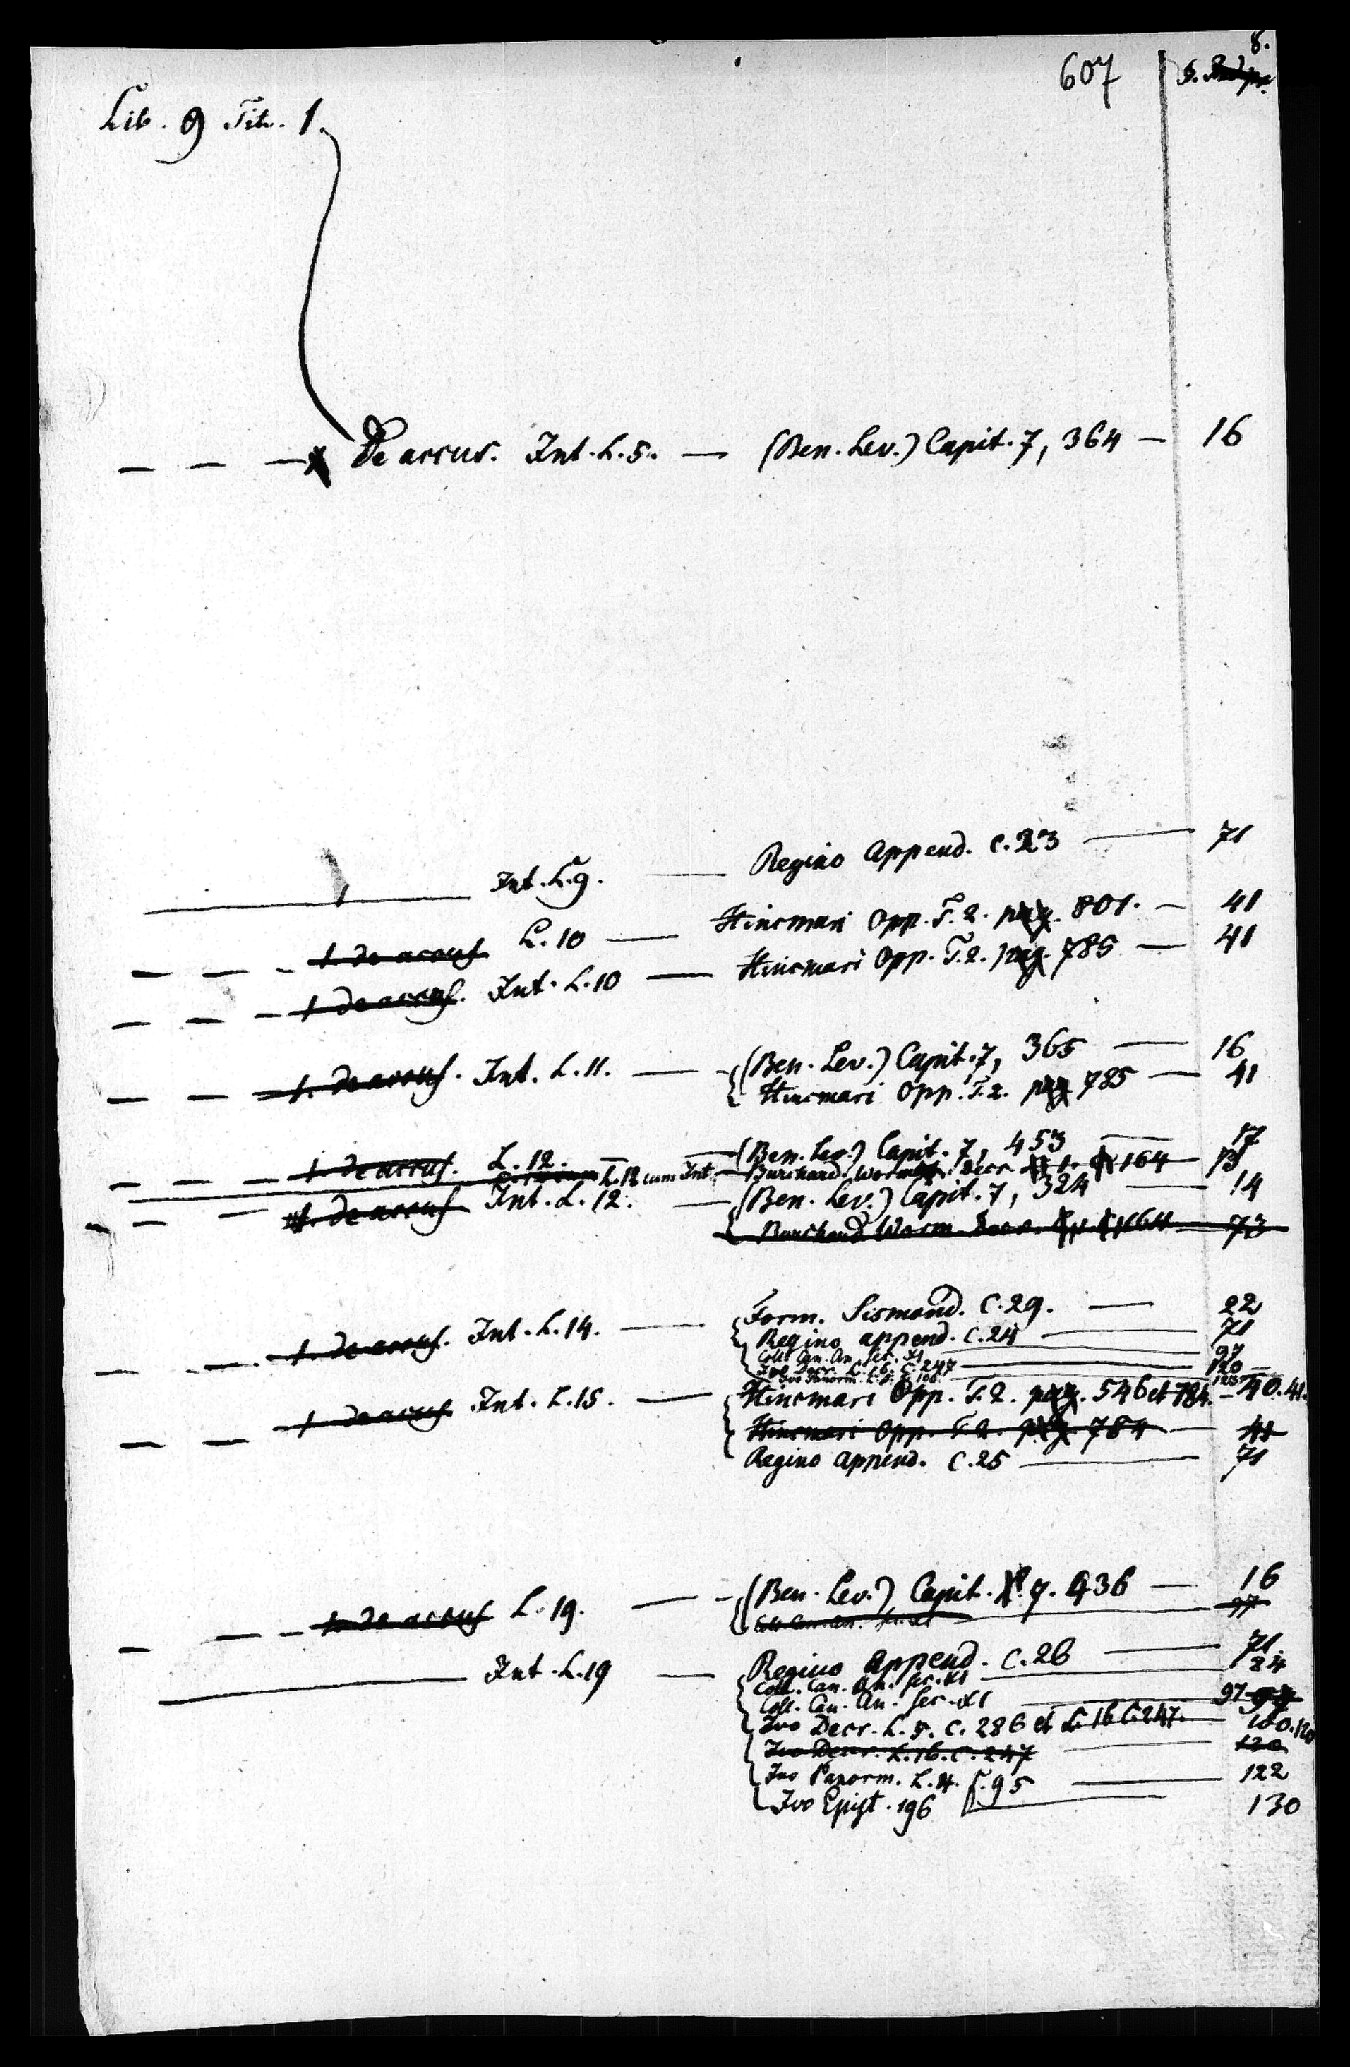 8.
607
Lib. 9 Tit. 1.
De accus. Int. L. 5. — (Ben. Lev.) Capit. 7, 364 — 16
Int. L. 9. — Regino Append. C. 23 — 71
1. de accus. L. 10 — Hincmari Opp. T. 2. pag. 801. — 41
1. de accus. Int. L. 10 — Hincmari Opp. T. 2. pag. 785 — 41
1. de accus. Int. L. 11. — (Ben. Lev.) Capit. 7, 365 — 16
Hincmari Opp. T. 2. pag 785 — 41
1. de accus. L. 12. — (Ben. Lev.) Capit. 7, 453 — 17
L. 12 cum Int. — Burchard Worm. Decr. 164 — 73
1. de accus. Int. L. 12. — (Ben. Lev.) Capit. 7, 324 — 14
Burchard Worm. Decr. 164 — 73
1. de accus. Int. L. 14. — Form. Sismond. C. 29. — 22
Regino append. C. 24 — 71
Coll. Can. An. Sec. XI — 97
Ivo Decr. L. 16. C. 247 — 120
Ivo Panorm.
1. de accus. Int. L. 15. — Hincmari Opp. T. 2. pag. 546 et 784. — 40. 41.
Hincmari Opp. T. 2. pag. 784 — 41
Regino Append. C. 25 — 71
1. de accus. L. 19. — (Ben. Lev.) Capit. 7. 436 — 16
Coll. Can. An. Sec. XI — 97
Int. L. 19 — Regino Append. C. 26 — 71.
Coll. Can. An. Sec. XI — 84
Coll. Can. An. Sec. XI — 97
Ivo Decr. L. 5. C. 286 et L. 16 C. 247. — 120
Ivo Decr. L. 16. C. 247 — 120
Ivo Panorm. L. 4. C. 95 — 122
Ivo Epist. 196 — 130